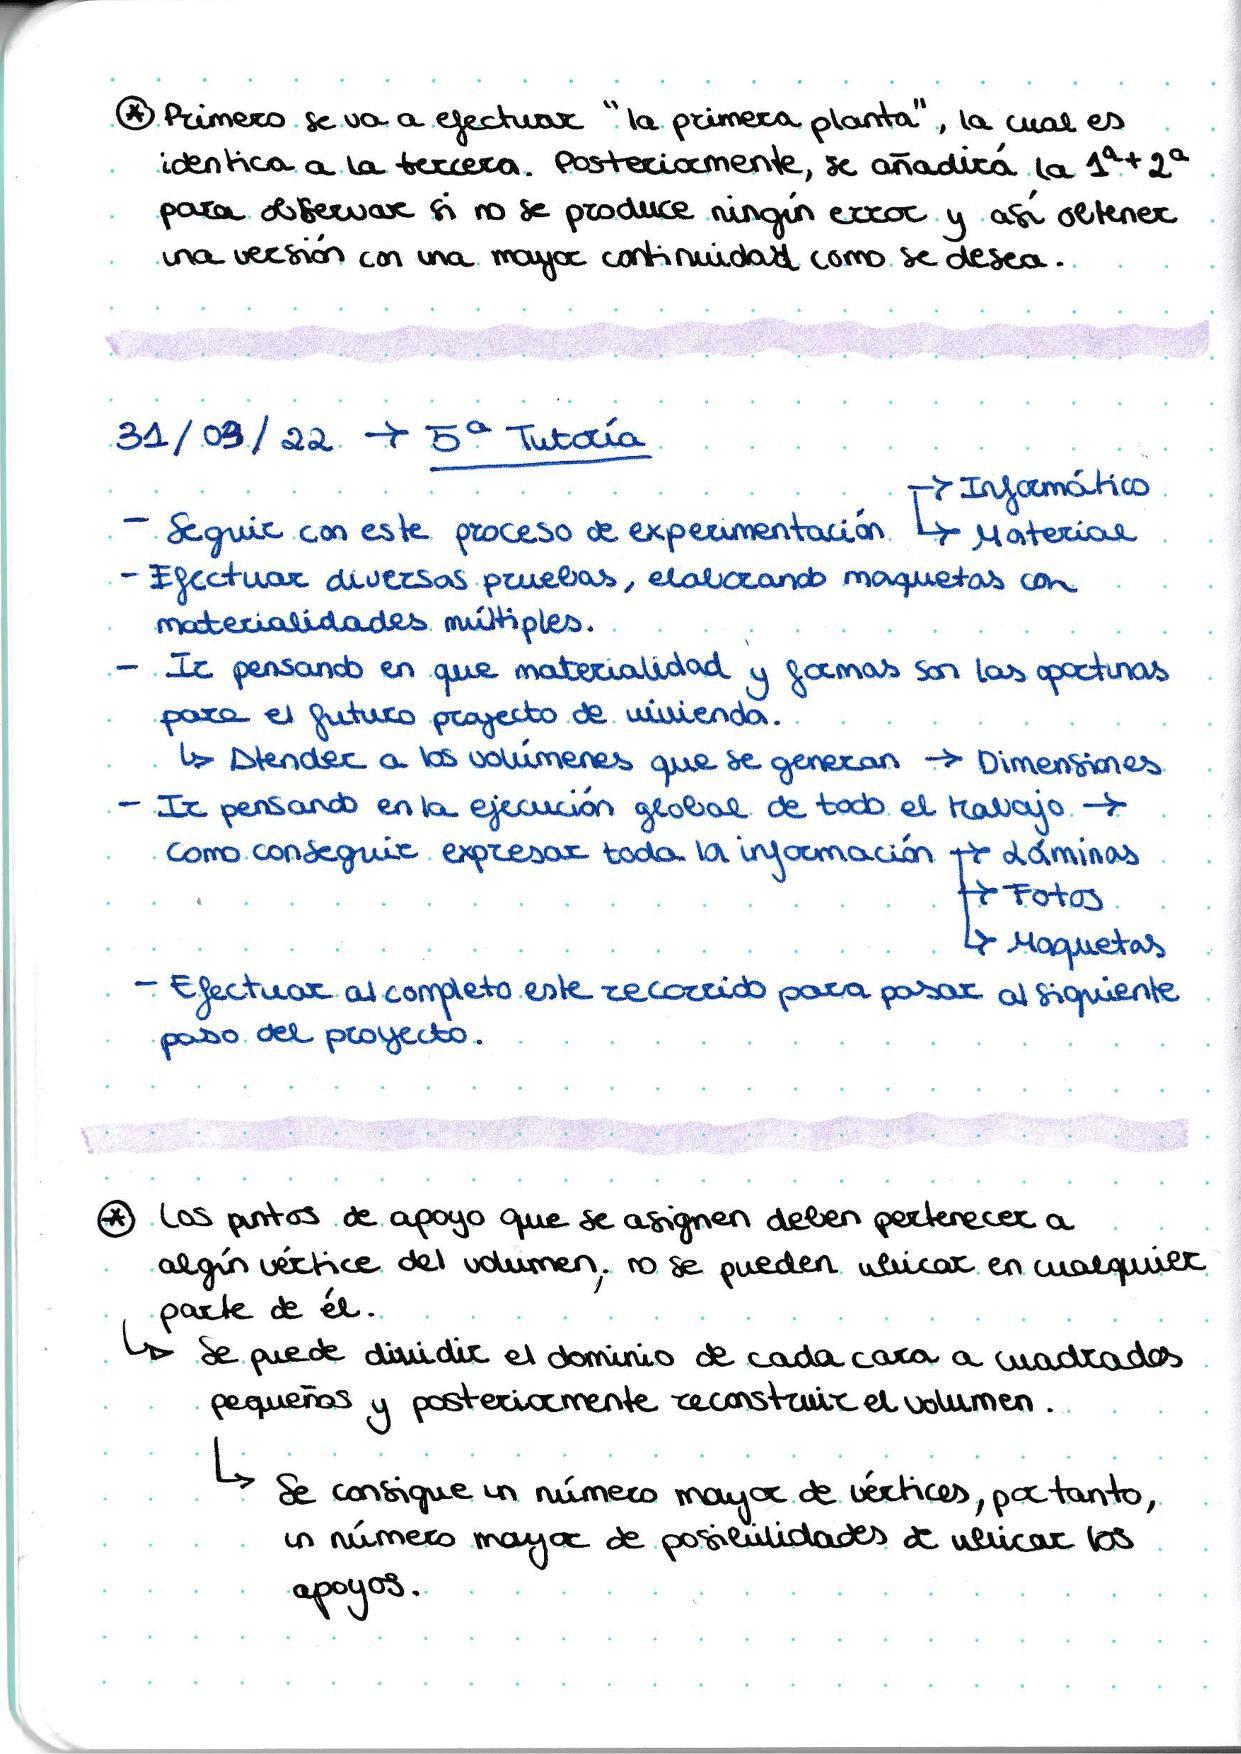 ⊛ Primero se va a efectuar "la primera planta", la cual es
identica a la tercera. Posteriormente, se añadirá la 1ª+2ª
para observar si no se produce ningún error y así obtener
una versión con una mayor continuidad como se desea.
31/03/22 → 5ª Tutoría
→ Informático
- Seguir con este proceso de experimentación ↳ Material
- Efectuar diversas pruebas, elaborando maquetas con
materialidades múltiples.
- Ir pensando en que materialidad y formas son las oportunas
para el futuro proyecto de vivienda.
↳ Atender a los volúmenes que se generan → Dimensiones
- Ir pensando en la ejecución global de todo el trabajo →
como conseguir expresar toda la información → Láminas
→ Fotos
↳ Maquetas
- Efectuar al completo este recorrido para pasar al siguiente
paso del proyecto.
⊛ Los puntos de apoyo que se asignen deben pertenecer a
algún vértice del volumen; no se pueden ubicar en cualquier
parte de él.
↳ Se puede dividir el dominio de cada cara a cuadrados
pequeños y posteriormente reconstruir el volumen.
↳ Se consigue un número mayor de vértices, por tanto,
un número mayor de posibilidades de ubicar los
apoyos.